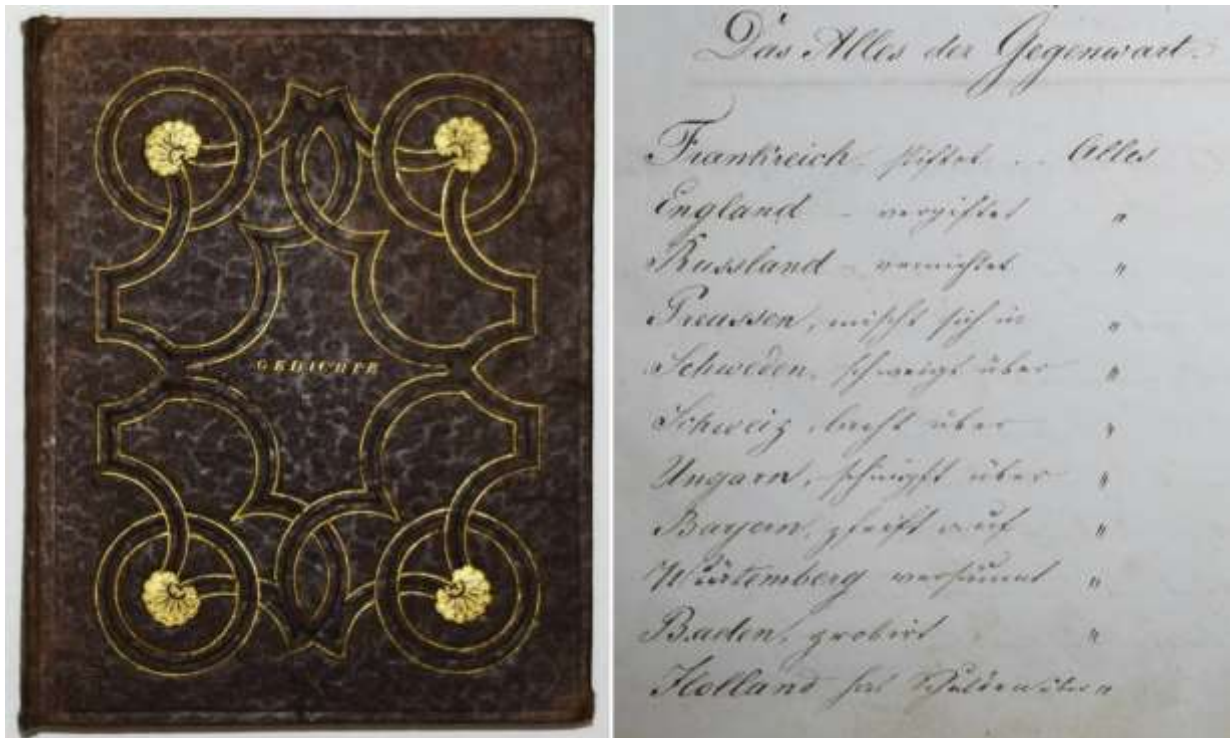 GEDICHTE
Das Alles der Gegenwart.
Frankreich stiftet .. Alles
England - vergiftet "
Russland - vernichtet "
Preussen, mischt sich in "
Schweden, schweigt über "
Schweiz, lacht über "
Ungarn, schimpft über "
Bayern, pfeift auf "
Würtemberg versäumt "
Baden, probirt "
Holland hat Schulden über "